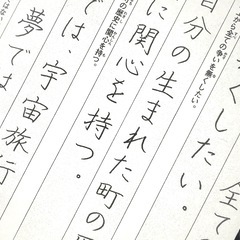 全て
から全ての争いを無くしたい。
くしたい。
自分の生まれた町の
の歴史に関心を持つ。
に関心を持つ。
では、宇宙旅行
夢では